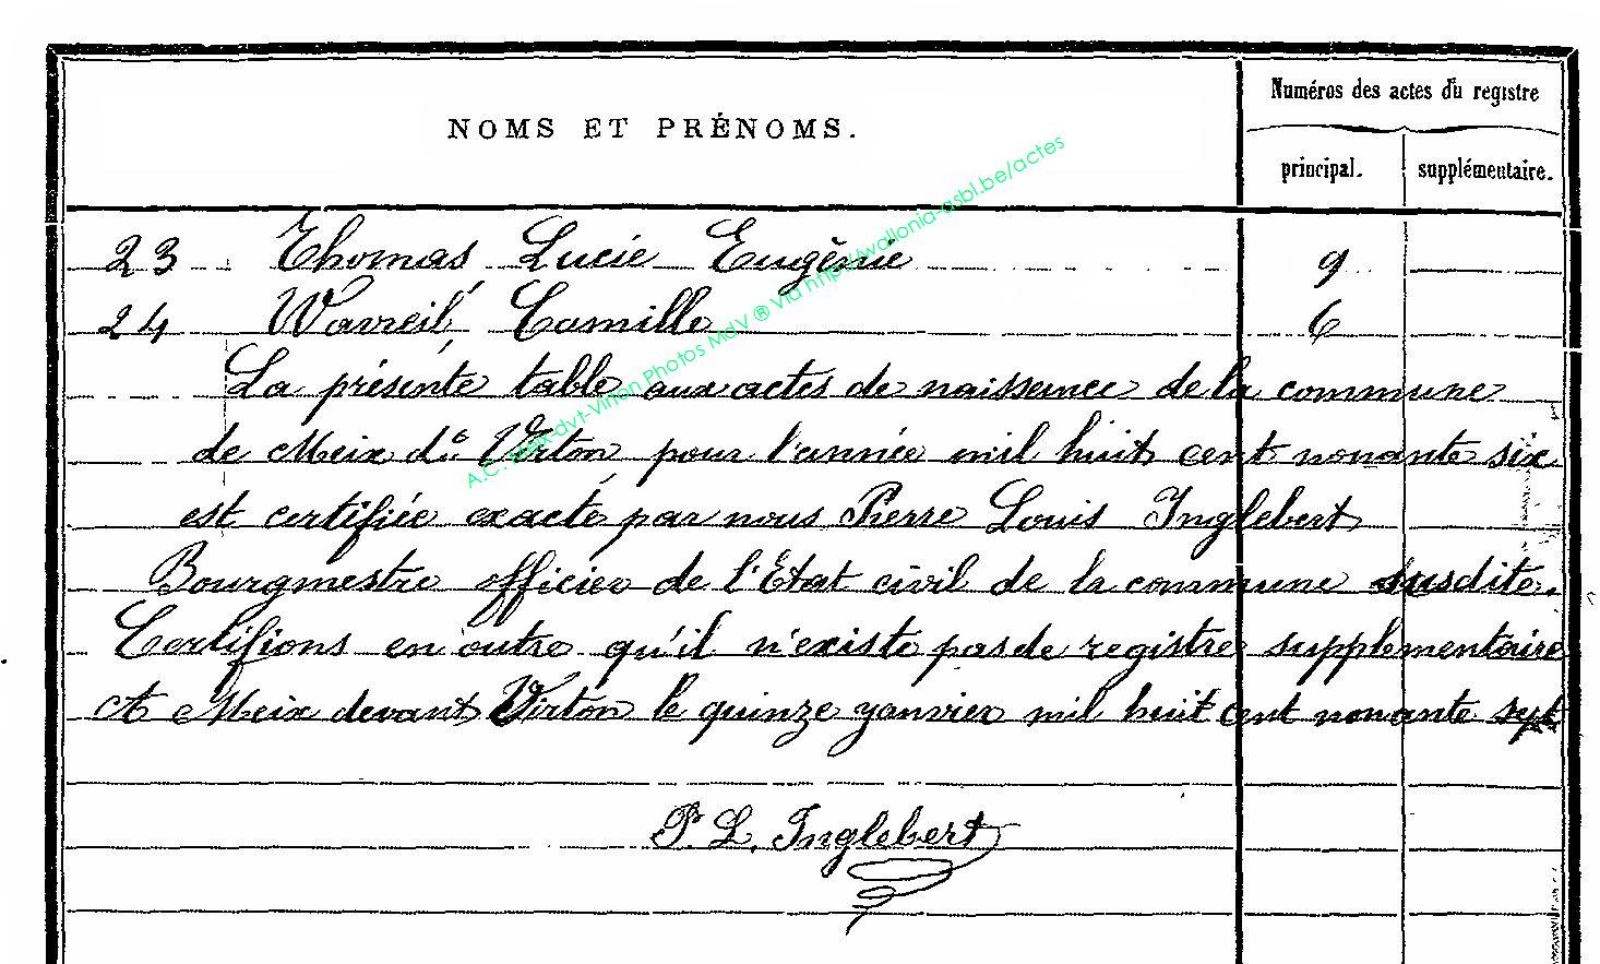 Numéros des actes du registre
NOMS ET PRÉNOMS.
principal. supplémentaire.
23 Thomas, Lucie Eugènie 9
24 Wavreil, Camille 6
La présente table aux actes de naissence de la commune
de Meix dt Virton pour l'année mil huit cent nonante six
est certifiée exacte, par nous Pierre Louis Inglebert
Bourgmestre officier de l'Etat civil de la commune susdite.
Certifions en outre qu'il n'existe pas de registre supplementaire
A Meix devant Virton le quinze yanvier mil huit cent nonante sept
P. L. Inglebert
A.C. Meix-dvt-Virton Photos MdV ® Via http://wallonia-asbl.be/actes